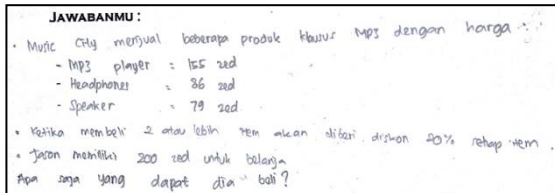 JAWABANMU :
• Music City menjual beberapa produk khusus MP3 dengan harga :
- MP3 player : 155 zed
- Headphones : 86 zed
- Speaker : 79 zed
• Ketika membeli 2 atau lebih item akan diberi diskon 20% setiap item .
• Jason memiliki 200 zed untuk belanja
Apa saja yang dapat dia beli ?